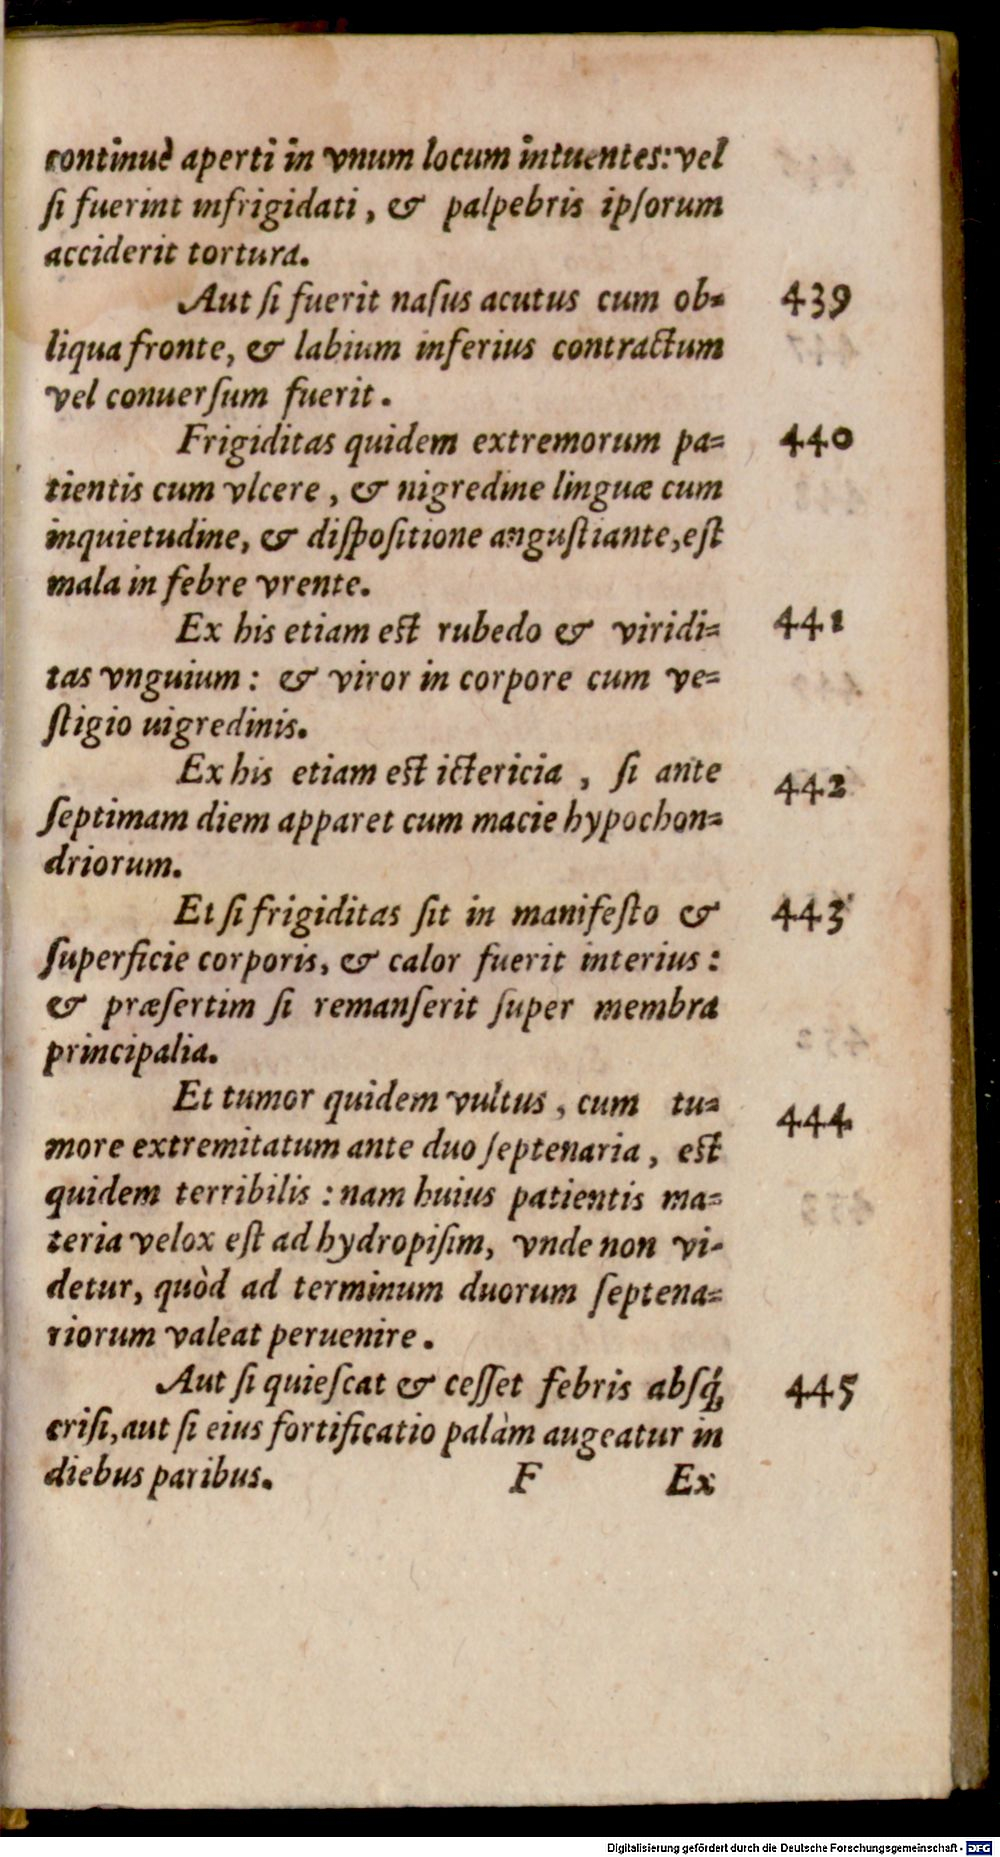 continuè aperti in vnum locum intuentes: vel
ſi fuerint infrigidati, & palpebris ipſorum
acciderit tortura.
Aut ſi fuerit naſus acutus cum ob= 439
liqua fronte, & labium inferius contractum
vel conuerſum fuerit.
Frigiditas quidem extremorum pa= 440
tientis cum vlcere, & nigredine linguæ cum
inquietudine, & diſpoſitione anguſtiante, eſt
mala in febre vrente.
Ex his etiam eſt rubedo & viridi= 441
tas vnguium: & viror in corpore cum ve=
ſtigio uigredinis.
Ex his etiam eſt ictericia, ſi ante 442
ſeptimam diem apparet cum macie hypochon=
driorum.
Et ſi frigiditas ſit in manifeſto & 443
ſuperficie corporis, & calor fuerit interius:
& præſertim ſi remanſerit ſuper membra
principalia.
Et tumor quidem vultus, cum tu= 444
more extremitatum ante duo ſeptenaria, eſt
quidem terribilis: nam huius patientis ma=
teria velox eſt ad hydropiſim, vnde non vi-
detur, quòd ad terminum duorum ſeptena=
riorum valeat peruenire.
Aut ſi quieſcat & ceſſet febris abſq́; 445
criſi, aut ſi eius fortificatio palàm augeatur in
diebus paribus. F Ex
Digitalisierung gefördert durch die Deutsche Forschungsgemeinschaft - DFG